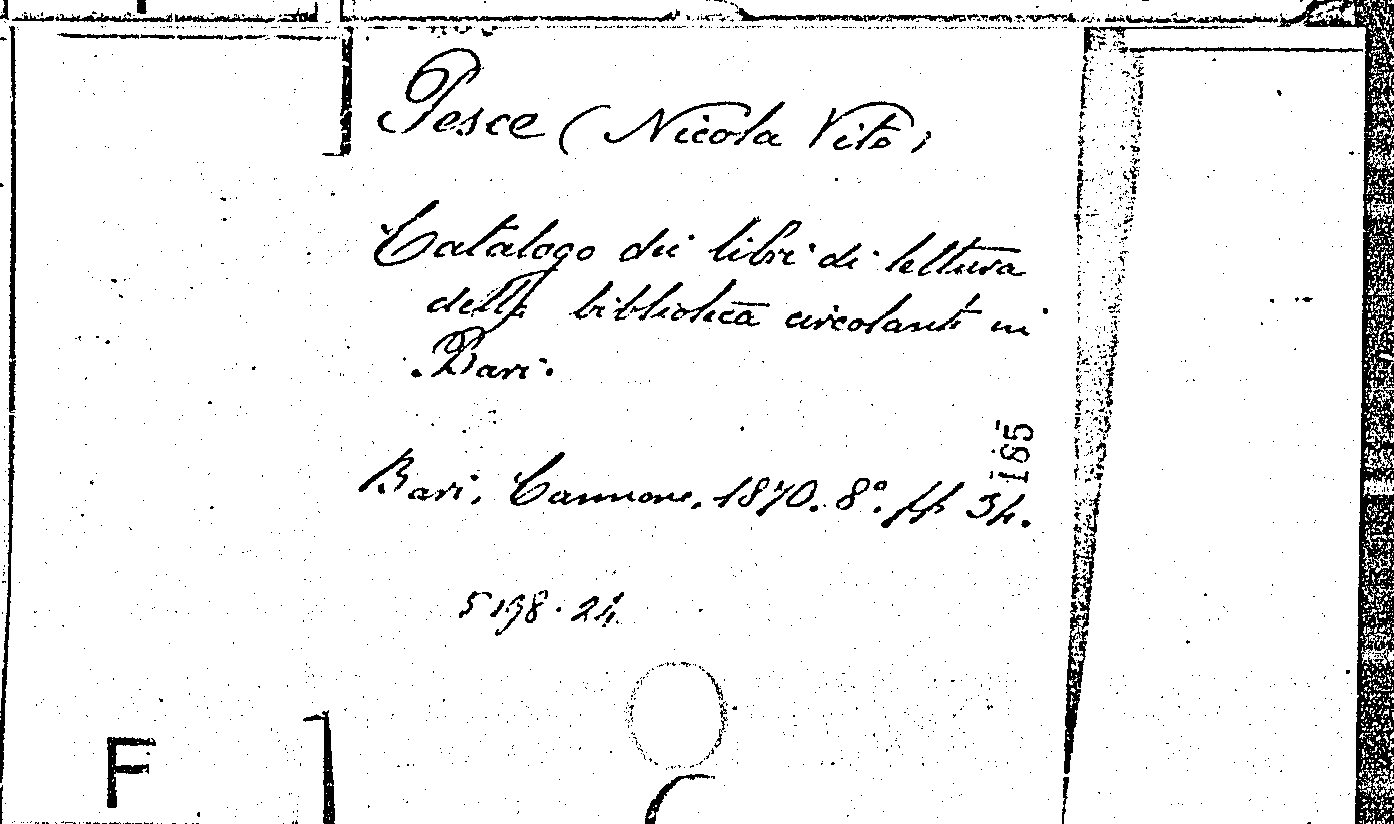 Pesce (Nicola Vito)
Catalogo dei libri di lettura
della biblioteca circolante in
Bari.
185
Bari. Cannone. 1870. 8°. pp 34.
5198.24
F